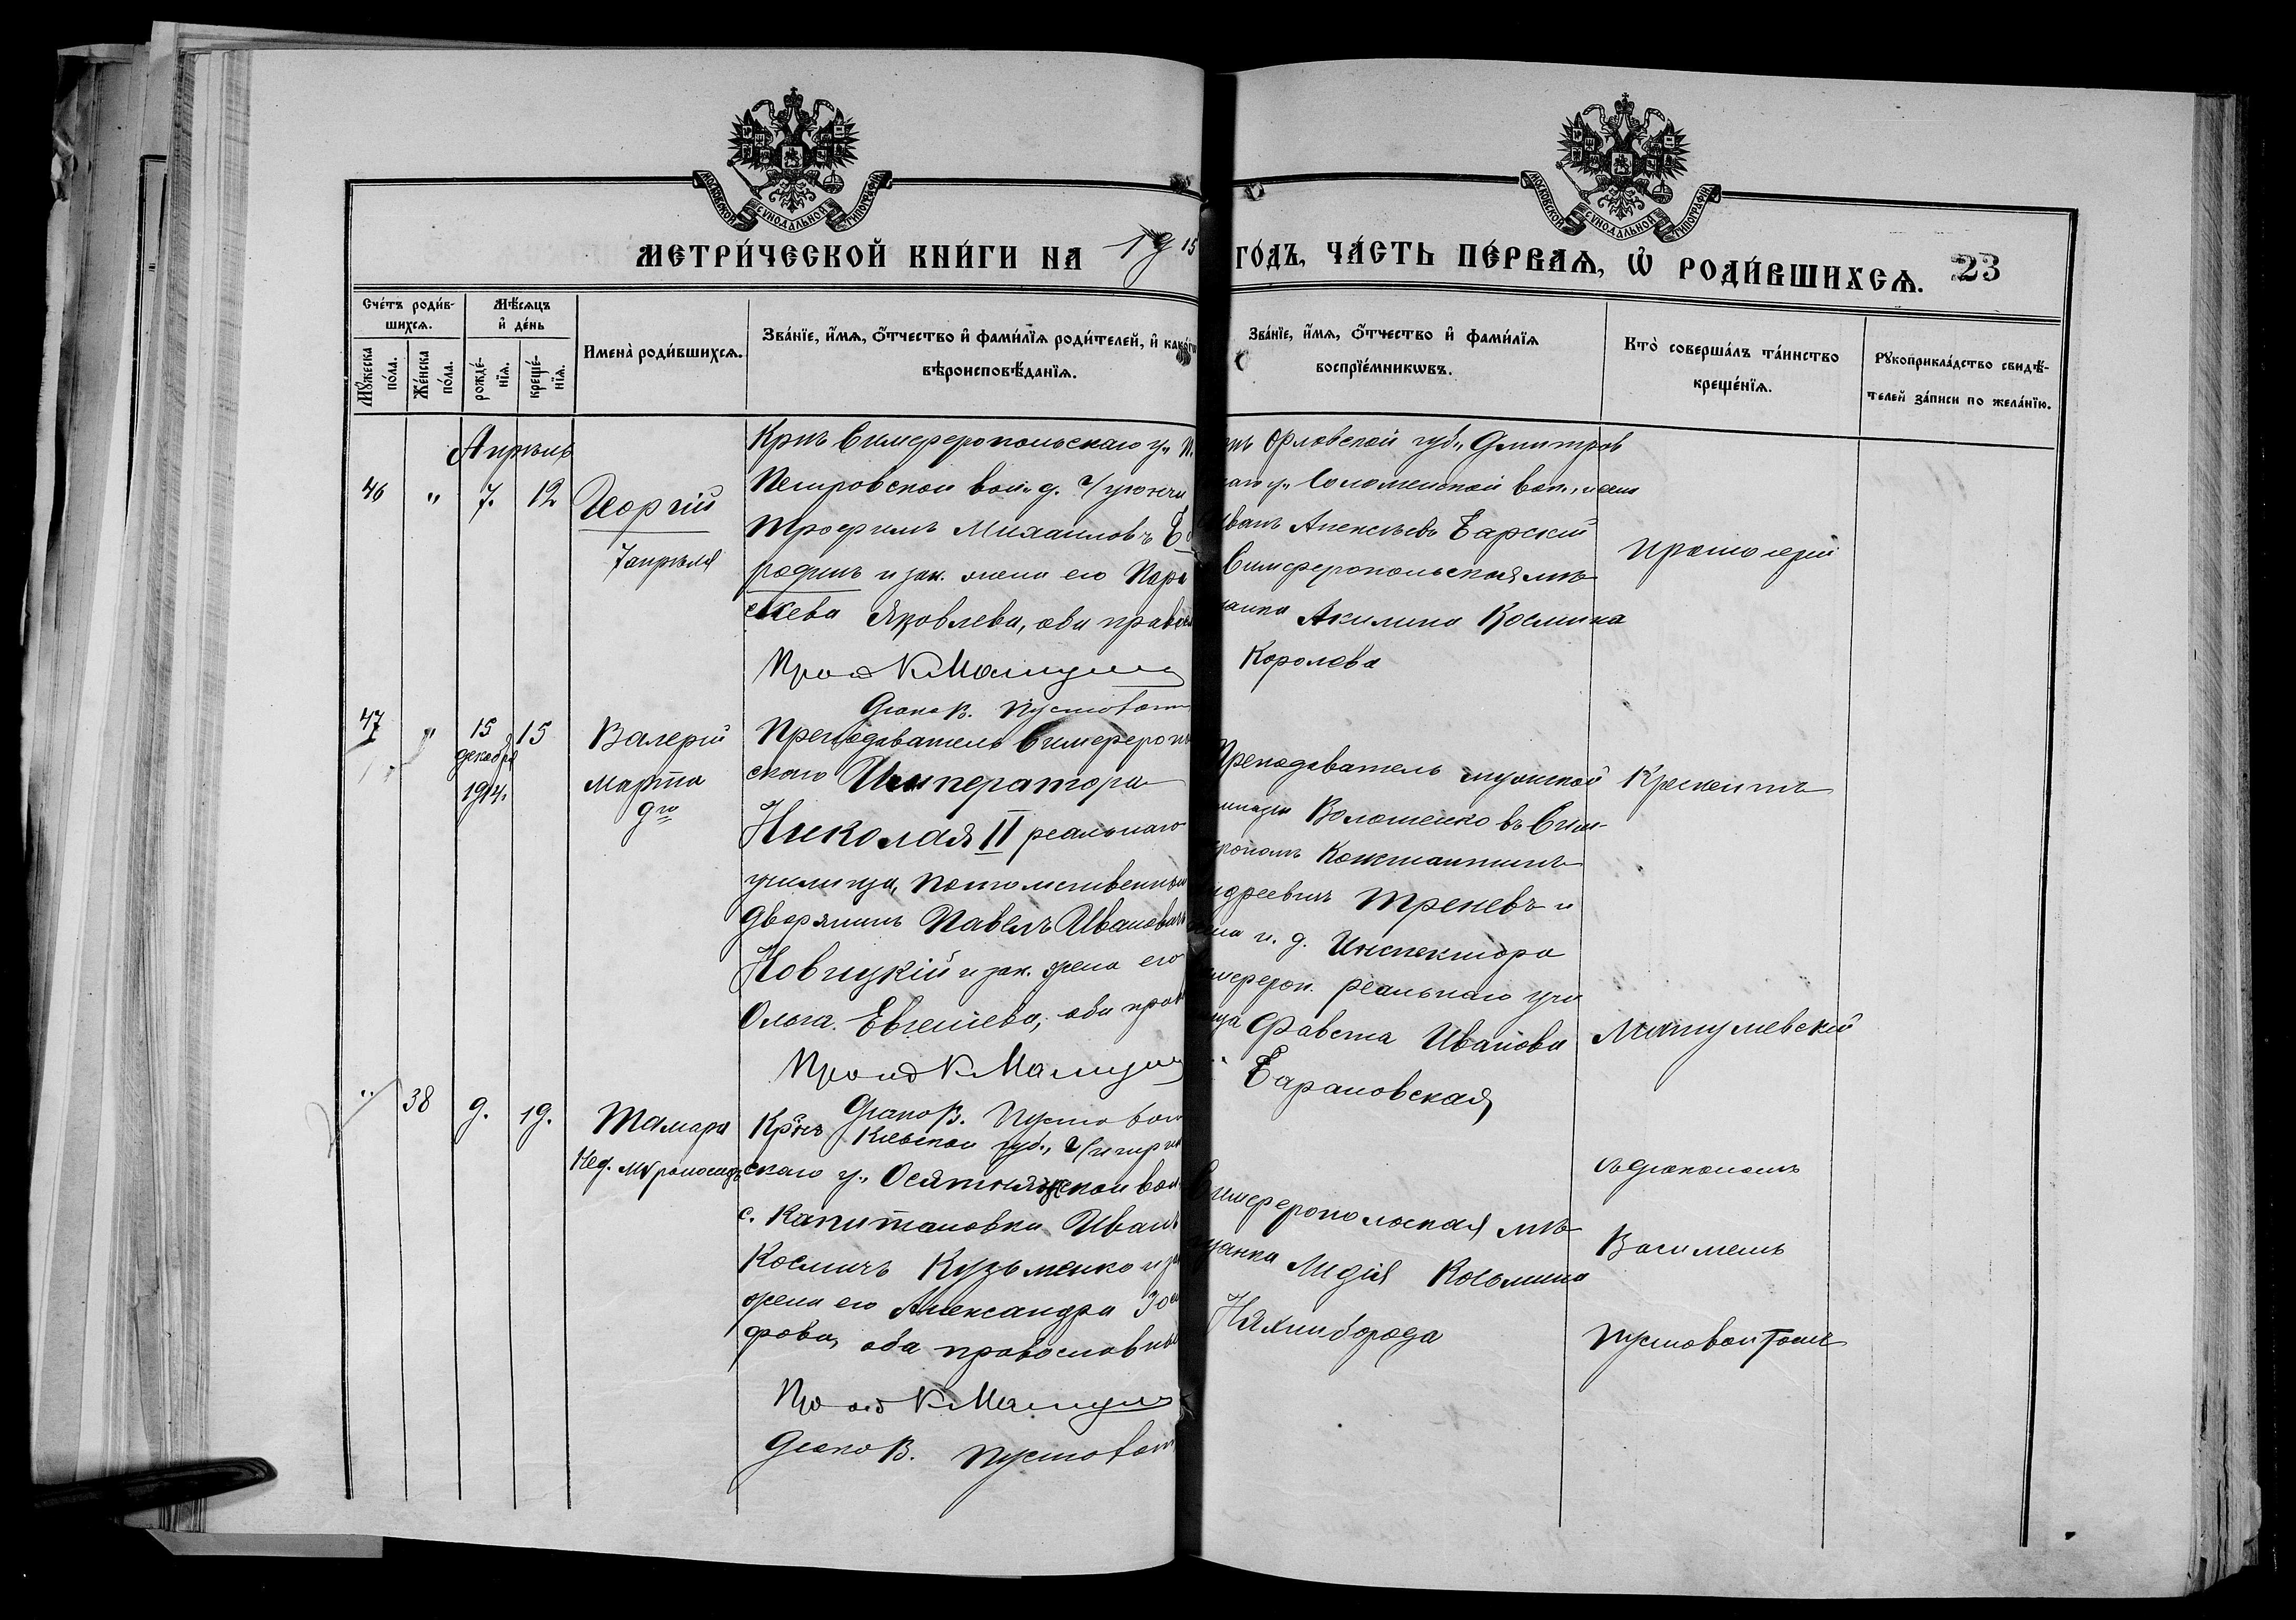 МОСКОВСКОЙ СѴНОДАЛЬНОЙ ТИПОГРАФІИ
МОСКОВСКОЙ СѴНОДАЛЬНОЙ ТИПОГРАФІИ
МЕТРИ́ЧЕСКОЙ КНИ́ГИ НА 1915 ГО́ДЪ, ЧА́СТЬ ПЕ́РВАЯ, Ѡ РОДИ́ВШИХСЯ. 23
Сче́тъ роди́в-
шихся.
Мѣ́сяцъ
и де́нь
Му́жеска
по́ла.
Же́нска
по́ла.
рожде́-
нїя.
креще́-
нїя.
Имена̀ роди́вшихся.
Зва́нїе, и́мя, о́тчество и фами́лїя роди́телей, и како́гѡ
вѣроисповѣ́данїя.
Зва́нїе, и́мя, о́тчество и фами́лїя
воспрїе́мникωвъ.
Кто̀ соверша́лъ та́инство
креще́нїя.
Рукоприкла́дство свидѣ́-
телей за́писи по жела́нїю.
Апрѣль
46 " 7. 12
Георгій
7 апрѣля
Крнъ Симферопольскаго у.,
Петровской вол. д.
Трофимъ Михаиловъ
родинъ и зак. жена его Пара
скева Яковлева, оба правосл
Прот К Матул
Діако В. Пустовойт
Орловской губ., Дмитров
скаго у., Соломенской вол.,
Иванъ Алексѣевъ Барскій
Симферопольская мѣ
щанка Акилина Космина
Королева
Протоіерей
47 " 15 декабря 1914. 15
Валерій
Марта
9го
Преподаватель Симферополь
скаго Императора
Николая II реальнаго
училища, потомственный
дворянинъ Павелъ Ивановичъ
Новицкій и зак. жена его
Ольга Евгеніева, оба прав
Прот К Матул
Діако В. Пустовойт
Преподаватель мужской
гимназіи Волошенко въ Сим-
ферополѣ Константинъ
Андреевичъ Треневъ и
жена и. д. Инспектора
Симфероп. реальнаго учи
лища Фавста Иванова
Барановская
Крескентъ
Матулевскій
" 38 9. 19.
Тамара
Нед. Мѵроносицъ
Крнъ Кіевской губ., Чигирин
скаго у., Осятняжской вол
с. Капитановки Иванъ
Космичъ Кузьменко и зак
жена его Александра
фова, оба православные
Прот К Матул
Діако В. Пустовойт
Симферопольская мѣ
щанка Лидія Косьмина
Няхиборода
съ діакономъ
Василіемъ
Пустовойтомъ